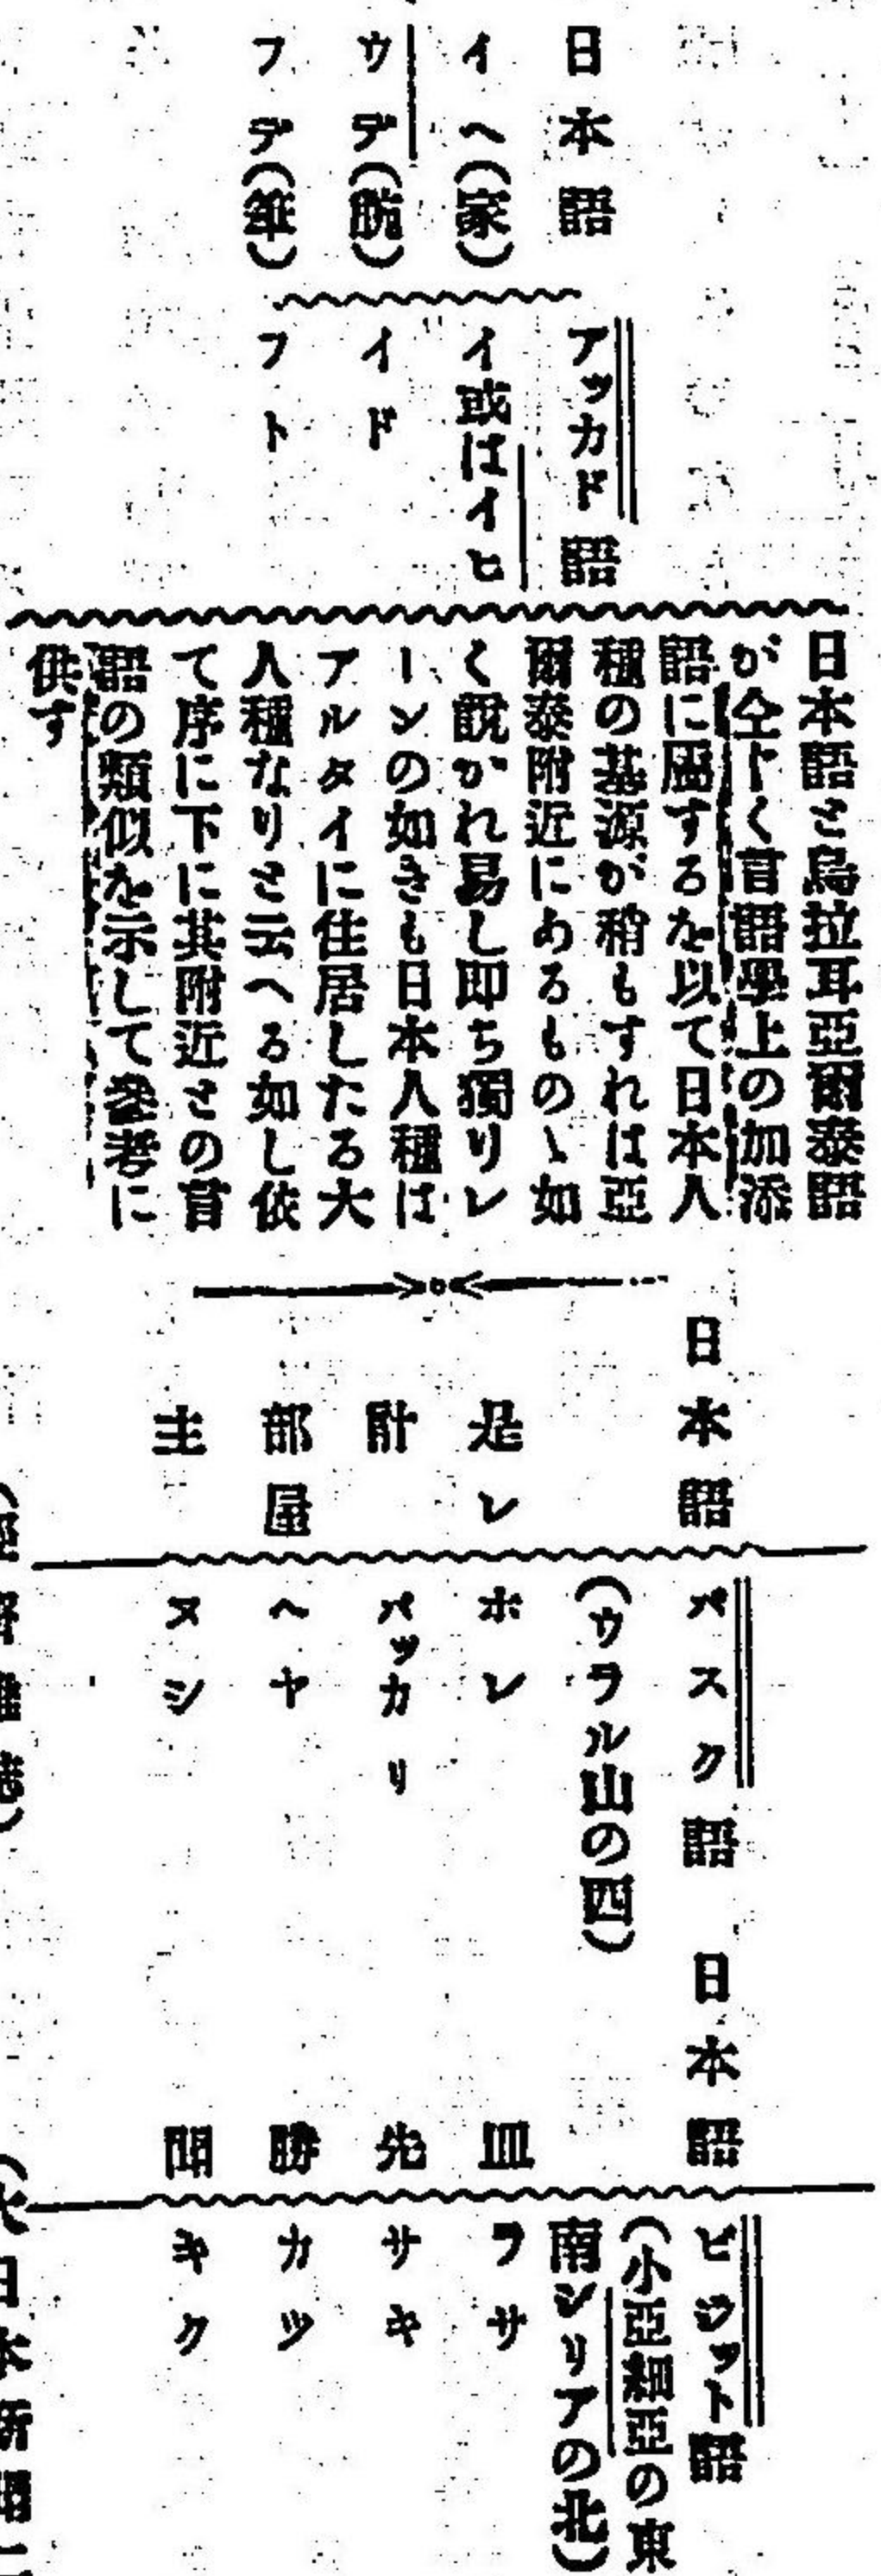 日本語
イヘ(家)
ウデ(腕)
フデ(筆)
アッカド語
イ或はイヒ
イド
フト
日本語と烏拉耳亞爾泰語
が全トく言語學上の加添
語に屬するを以て日本人
種の基源が稍もすれば亞
爾泰附近にあるものゝ如
く說かれ易し卽ち獨リレ
ーンの如きも日本人種は
アルタイに住居したる大
人種なりと云へる如し依
て序に下に其附近との言
語の類似を示して參考に
供す
日本語
是レ
計
部屋
主
バスク語
(ウラル山の西)
ホレ
バッカリ
ヘヤ
ヌシ
日本語
皿
先
勝
聞
ヒジット語
(小亞細亞の東
南シリアの北)
ヲサ
サキ
カツ
キク